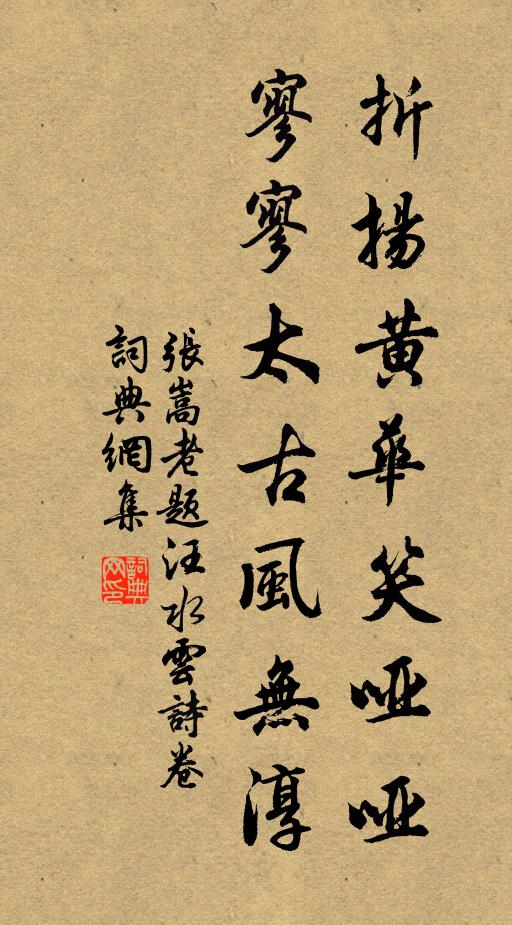 折揚黃華笑啞啞
寥寥太古風無淳
張嵩老題汪水雲詩卷
詞典網集
詞典網印